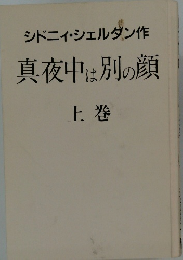 シドニィ・シェルダン作
真夜中は別の顔
上巻